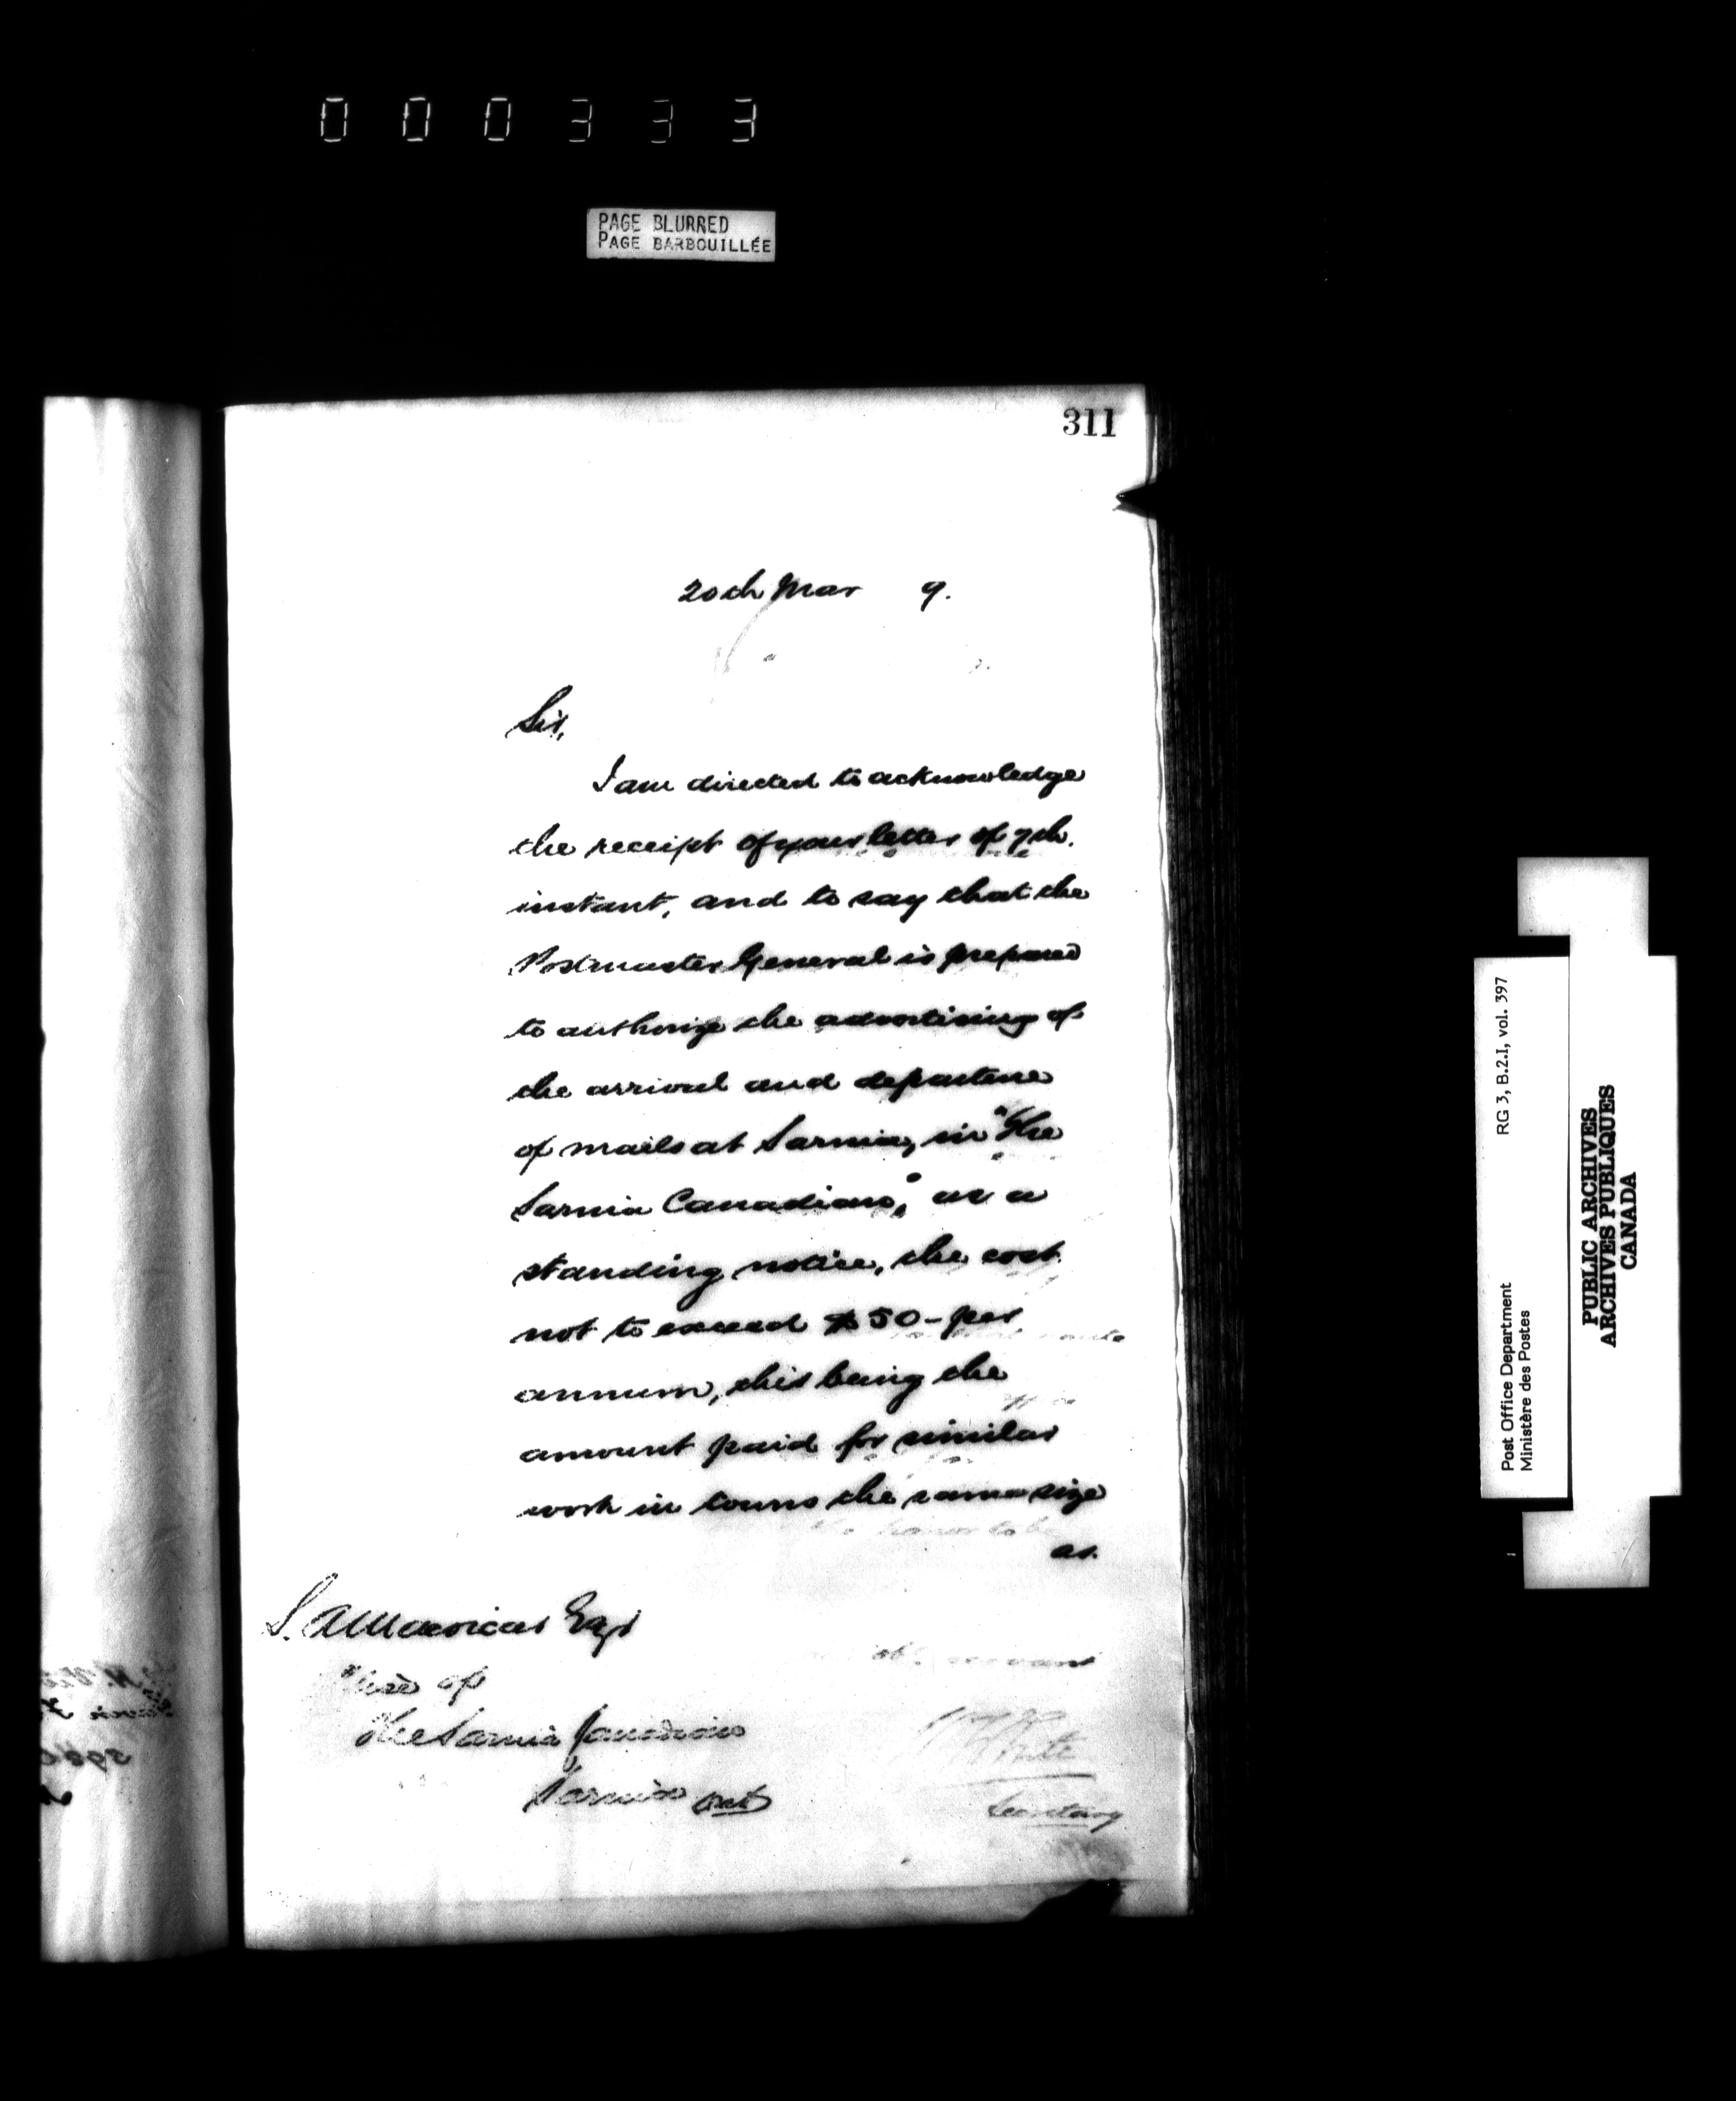 000333
PAGE BLURRED
PAGE BARBOUILLÉE
311
20th Mar 9.
Sir,
I am directed to acknowledge
the receipt of your letter of 7th.
instant, and to say that the
Postmaster General is prepared
to authorize the advertising of
the arrival and departure
of mails at Sarnia, in "The
Sarnia Canadian," as a
standing notice, the cost
not to exceed $50- per
annum, this being the
amount paid for similar
work in towns the same size
as.
Esqr
of
The Sarnia Canadian
Sarnia Ont
servant
White
Secretary
RG 3, B.2.I, vol. 397
Post Office Department
Ministère des Postes
PUBLIC ARCHIVES
ARCHIVES PUBLIQUES
CANADA